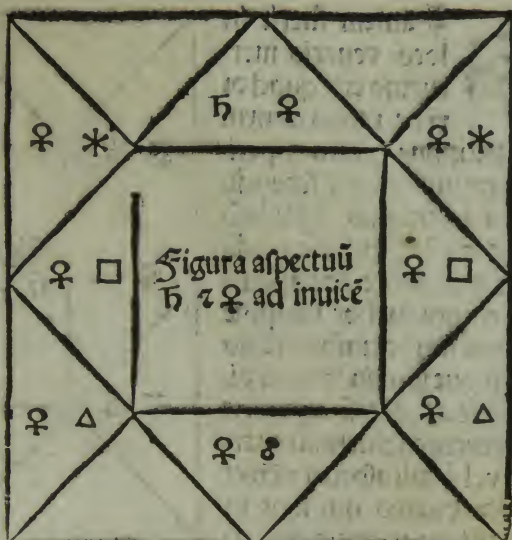 ♄ ♀
♀ ⚹
♀ ⚹
♀ □
Figura aſpectuũ
♄ ⁊ ♀ ad inuicẽ
♀ □
♀ △
♀ ☍
♀ △